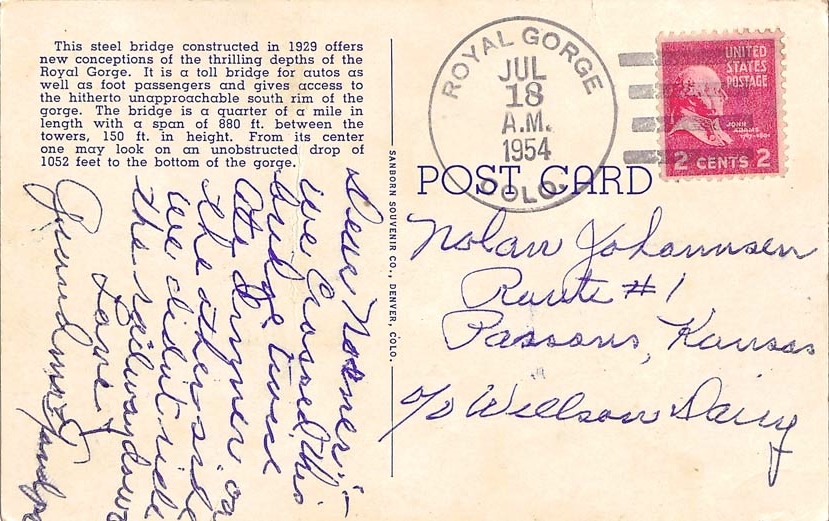 This steel bridge constructed in 1929 offers
new conceptions of the thrilling depths of the
Royal Gorge. It is a toll bridge for autos as
well as foot passengers and gives access to
the hitherto unapproachable south rim of the
gorge. The bridge is a quarter of a mile in
length with a span of 880 ft. between the
towers, 150 ft. in height. From its center
one may look on an unobstructed drop of
1052 feet to the bottom of the gorge.
Dear
we Crossed this
bridge twice
Ate dinner on
the other side
we didnt ride
the railway down
Love
Grandma &
SANBORN SOUVENIR CO., DENVER, COLO.
ROYAL GORGE
JUL
18
A.M.
1954
COLO.
UNITED
STATES
POSTAGE
JOHN
ADAMS
2 CENTS 2
POST CARD
Nolan Johannsen
Route #1
Parsons, Kansas
c/o Willson Dairy